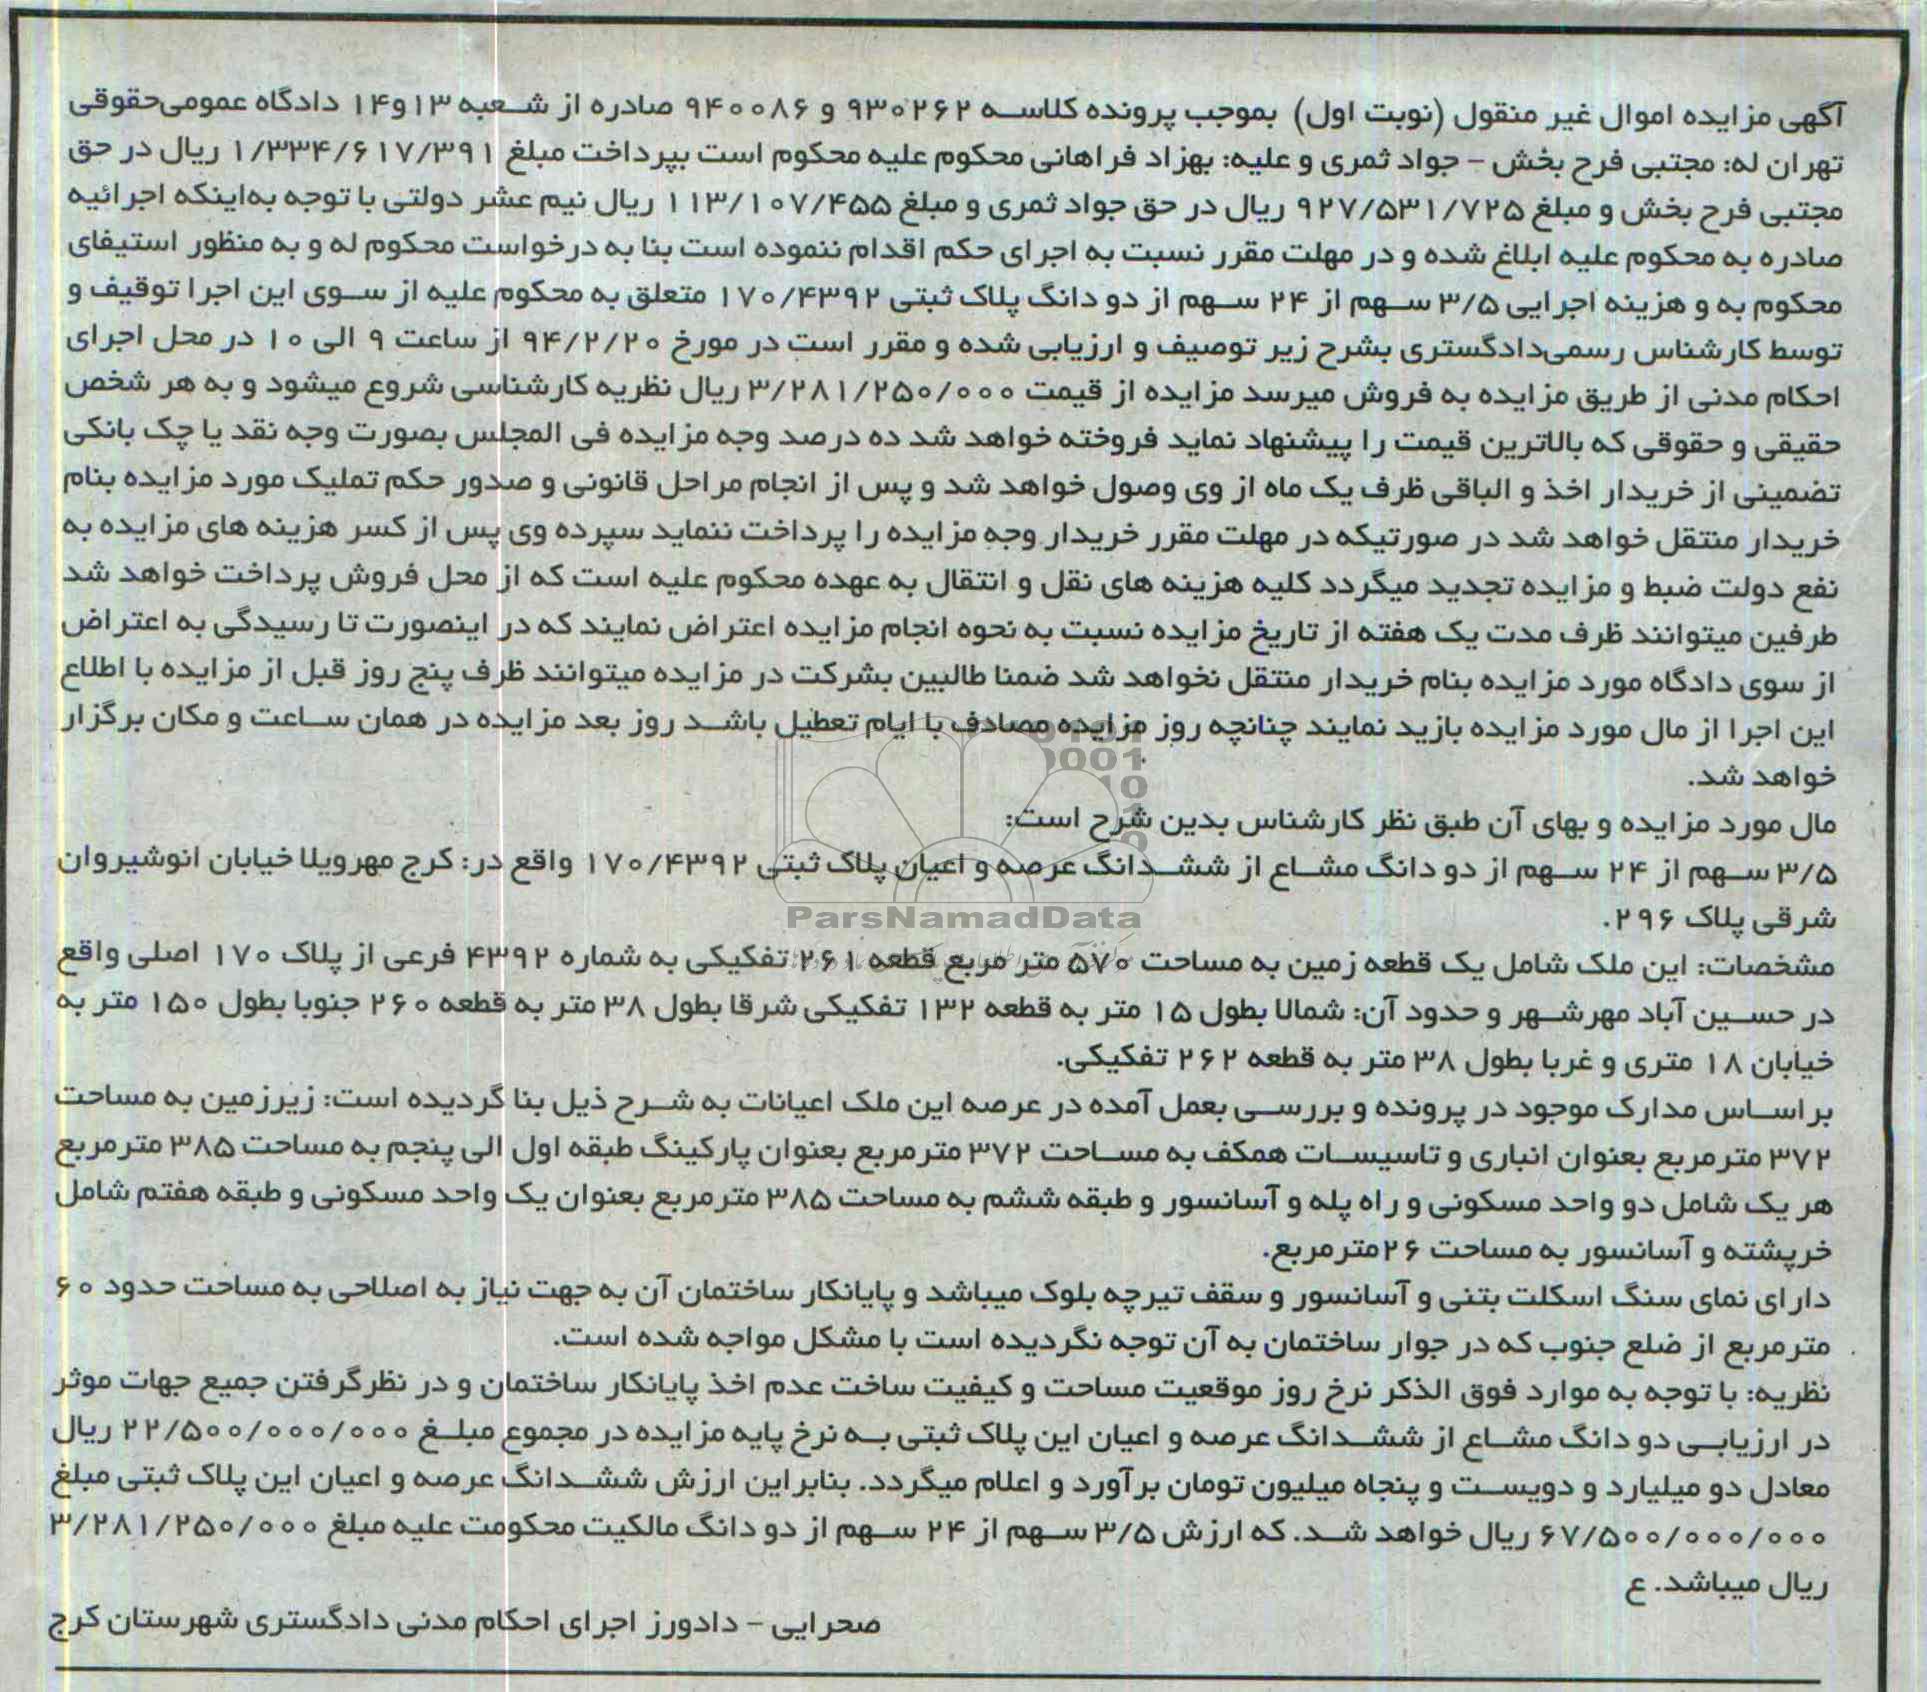 آگهی مزایده اموال غیر منقول (نوبت اول) بموجب پرونده کلاسه ۹۳۰۲۶۲ و ۹۴۰۰۸۶ صادره از شعبه ۱۳و۱۴ دادگاه عمومی‌حقوقی
تهران له: مجتبی فرح بخش – جواد ثمری و علیه: بهزاد فراهانی محکوم علیه محکوم است بپرداخت مبلغ ۱/۳۳۴/۶۱۷/۳۹۱ ریال در حق
مجتبی فرح بخش و مبلغ ۹۲۷/۵۳۱/۷۲۵ ریال در حق جواد ثمری و مبلغ ۱۱۳/۱۰۷/۴۵۵ ریال نیم عشر دولتی با توجه به‌اینکه اجرائیه
صادره به محکوم علیه ابلاغ شده و در مهلت مقرر نسبت به اجرای حکم اقدام ننموده است بنا به درخواست محکوم له و به منظور استیفای
محکوم به و هزینه اجرایی ۳/۵ سهم از ۲۴ سهم از دو دانگ پلاک ثبتی ۱۷۰/۴۳۹۲ متعلق به محکوم علیه از سوی این اجرا توقیف و
توسط کارشناس رسمی‌دادگستری بشرح زیر توصیف و ارزیابی شده و مقرر است در مورخ ۹۴/۲/۲۰ از ساعت ۹ الی ۱۰ در محل اجرای
احکام مدنی از طریق مزایده به فروش میرسد مزایده از قیمت ۳/۲۸۱/۲۵۰/۰۰۰ ریال نظریه کارشناسی شروع میشود و به هر شخص
حقیقی و حقوقی که بالاترین قیمت را پیشنهاد نماید فروخته خواهد شد ده درصد وجه مزایده فی المجلس بصورت وجه نقد یا چک بانکی
تضمینی از خریدار اخذ و الباقی ظرف یک ماه از وی وصول خواهد شد و پس از انجام مراحل قانونی و صدور حکم تملیک مورد مزایده بنام
خریدار منتقل خواهد شد در صورتیکه در مهلت مقرر خریدار وجه مزایده را پرداخت ننماید سپرده وی پس از کسر هزینه های مزایده به
نفع دولت ضبط و مزایده تجدید میگردد کلیه هزینه های نقل و انتقال به عهده محکوم علیه است که از محل فروش پرداخت خواهد شد
طرفین میتوانند ظرف مدت یک هفته از تاریخ مزایده نسبت به نحوه انجام مزایده اعتراض نمایند که در اینصورت تا رسیدگی به اعتراض
از سوی دادگاه مورد مزایده بنام خریدار منتقل نخواهد شد ضمنا طالبین بشرکت در مزایده میتوانند ظرف پنج روز قبل از مزایده با اطلاع
این اجرا از مال مورد مزایده بازید نمایند چنانچه روز مزایده مصادف با ایام تعطیل باشد روز بعد مزایده در همان ساعت و مکان برگزار
خواهد شد.
مال مورد مزایده و بهای آن طبق نظر کارشناس بدین شرح است:
۳/۵ سهم از ۲۴ سهم از دو دانگ مشاع از ششدانگ عرصه و اعیان پلاک ثبتی ۱۷۰/۴۳۹۲ واقع در: کرج مهرویلا خیابان انوشیروان
شرقی پلاک ۲۹۶.
ParsNamadData
مشخصات: این ملک شامل یک قطعه زمین به مساحت ۵۷۰ متر مربع قطعه ۲۶۱ تفکیکی به شماره ۴۳۹۲ فرعی از پلاک ۱۷۰ اصلی واقع
در حسین آباد مهرشهر و حدود آن: شمالا بطول ۱۵ متر به قطعه ۱۳۲ تفکیکی شرقا بطول ۳۸ متر به قطعه ۲۶۰ جنوبا بطول ۱۵۰ متر به
خیابان ۱۸ متری و غربا بطول ۳۸ متر به قطعه ۲۶۲ تفکیکی.
براساس مدارک موجود در پرونده و بررسی بعمل آمده در عرصه این ملک اعیانات به شرح ذیل بنا گردیده است: زیرزمین به مساحت
۳۷۲ مترمربع بعنوان انباری و تاسیسات همکف به مساحت ۳۷۲ مترمربع بعنوان پارکینگ طبقه اول الی پنجم به مساحت ۳۸۵ مترمربع
هر یک شامل دو واحد مسکونی و راه پله و آسانسور و طبقه ششم به مساحت ۳۸۵ مترمربع بعنوان یک واحد مسکونی و طبقه هفتم شامل
خرپشته و آسانسور به مساحت ۲۶مترمربع.
دارای نمای سنگ اسکلت بتنی و آسانسور و سقف تیرچه بلوک میباشد و پایانکار ساختمان آن به جهت نیاز به اصلاحی به مساحت حدود ۶۰
مترمربع از ضلع جنوب که در جوار ساختمان به آن توجه نگردیده است با مشکل مواجه شده است.
نظریه: با توجه به موارد فوق الذکر نرخ روز موقعیت مساحت و کیفیت ساخت عدم اخذ پایانکار ساختمان و در نظرگرفتن جمیع جهات موثر
در ارزیابی دو دانگ مشاع از ششدانگ عرصه و اعیان این پلاک ثبتی به نرخ پایه مزایده در مجموع مبلغ ۲۲/۵۰۰/۰۰۰/۰۰۰ ریال
معادل دو میلیارد و دویست و پنجاه میلیون تومان برآورد و اعلام میگردد. بنابراین ارزش ششدانگ عرصه و اعیان این پلاک ثبتی مبلغ
۶۷/۵۰۰/۰۰۰/۰۰۰ ریال خواهد شد. که ارزش ۳/۵ سهم از ۲۴ سهم از دو دانگ مالکیت محکومت علیه مبلغ ۳/۲۸۱/۲۵۰/۰۰۰
ریال میباشد. ع
صحرایی – دادورز اجرای احکام مدنی دادگستری شهرستان کرج